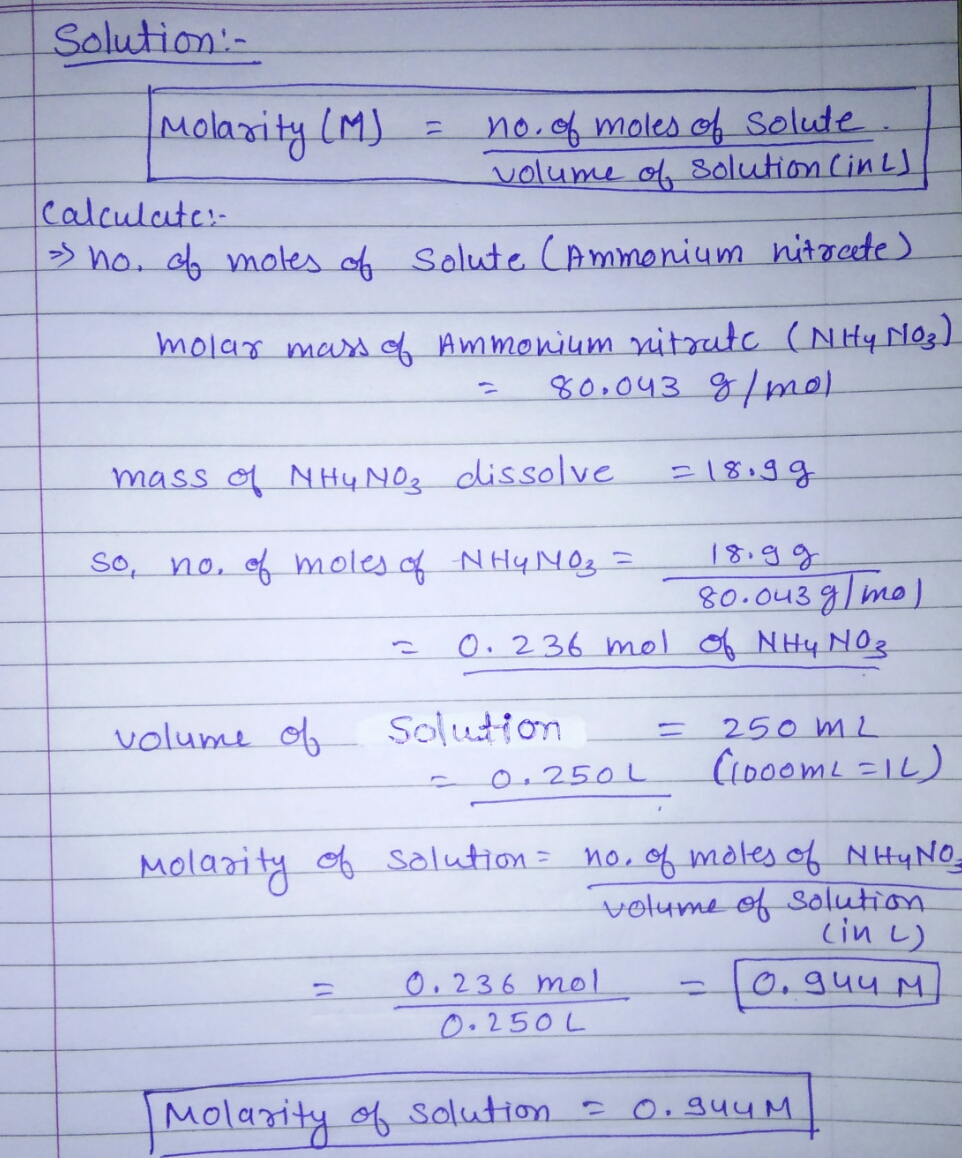 Solution:-
Molarity (M) = no. of moles of solute.
volume of solution (in L)
Calculate:-
⇒ no. of moles of solute (Ammonium nitrate)
molar mass of Ammonium nitrate (NH4NO3)
= 80.043 g/mol
mass of NH4NO3 dissolve = 18.9g
So, no. of moles of NH4NO3 = 18.9g
80.043 g/mol
= 0.236 mol of NH4NO3
volume of Solution = 250 mL
= 0.250L (1000mL = 1L)
Molarity of solution = no. of moles of NH4NO3
volume of solution
(in L)
= 0.236 mol = 0.944 M
0.250L
Molarity of solution = 0.944M